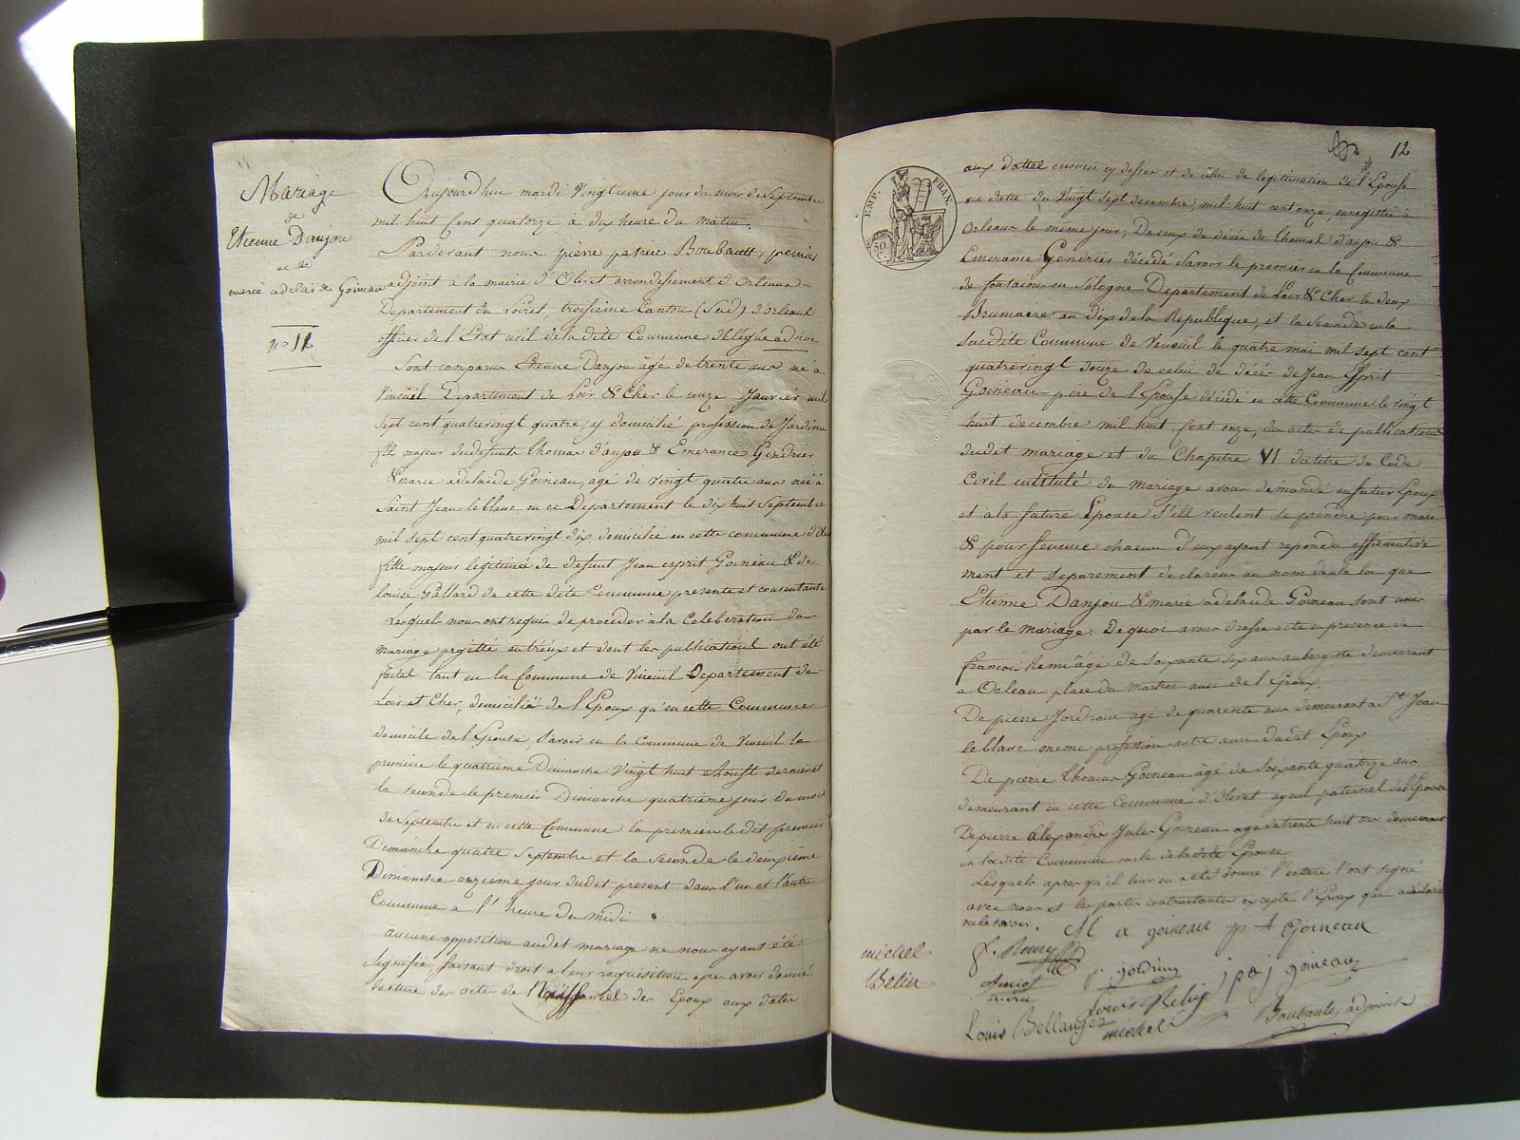 Mariage
de
Etienne Danjou
et de
marie adelaide Goineau
no 12
Aujourd'hui mardi Vingtieme jour du mois de Septembre
mil huit Cent quatorze à dix heure du matin.
Pardevant nous pierre patrice Boubault, premier
adjoint à la mairie d'Olivet arrondissement d'Orleans
Departement du Loiret, troisieme Canton (Sud) d'orleans
officier de l'Etat civil de la dite Commune délégué
Sont comparus Etienne Danjou âgé de trente ans né à
Vineüil Departement de Loir & Cher le onze Janvier mil
sept cent quatrevingt quatre, y domicilié profession de Jardinier
fils majeur de defunts thomas d'anjou & Emerance Gendrier
& marie adelaide Goineau, agé de vingt quatre ans née à
Saint Jean leblanc en ce Departement le dix huit Septembre
mil sept cent quatrevingt dix, domicilié en cette commune
fille majeur légitimée de defunt Jean esprit Goineau & de
louise Pallard de cette dite Commune presente et consentante
Lesquels nous ont requis de procéder à la Celebration du
mariage projetté entr'eux et dont les publications ont été
faites tant en la Commune de Vineuil Departement de
Loir et Cher, domicilié de l'Epoux qu'en cette Commune
domicile de l'Epouse, Savoir en la Commune de Vineuil la
premiere le quatrieme Dimanche Vingt huit Aoust dernier et
la seconde le premier Dimanche quatrieme jour du mois
de Septembre et en cette Commune la premiere le dit premier
Dimanche quatre Septembre et la Seconde le deuxieme
Dimanche onzieme jour dudit present dans l'un et l'autre
Commune a l'heure de midi.
Aucune opposition audit mariage ne nous ayant été
Signifié, faisant droit a leur requisition apres avoir donné
lecture des actes de Naissances des Epoux aux dates
12
EMP. FRAN.
50 C.
aux dattes enoncées cy dessus et de celui de legitimation de l'Epouse
en datte du Vingt sept decembre, mil huit cent onze, enregistré à
Orleans le même jour, De ceux de décés de thomas d'anjou &
Emerance Gendrier décédé Savoir le premier en la Commune
de fontaine en Sologne Departement de Loir & Cher le deux
Brumaire an dix de la Republique, et la Seconde en la
Susdite Commune de Vineuil le quatre mai mil sept cent
quatrevingt douze de celui de décès de Jean Esprit
Goineau pere de l'Epouse décédé en cette Commune le vingt
huit decembre mil huit Cent onze, des actes de publications
dudit mariage et du Chapitre VI du titre du Code
Civil intitulé du Mariage avons demandé au futur Epoux
et a la future Epouse S'ils veulent se prendre pour mari
& pour femme chacun d'eux ayant repondu affirmative
ment et Separement declarons au nom de la loi que
Etienne Danjou & marie adelaide Goineau sont unis
par le Mariage. De quoi avons dressé acte en presence de
françois Remi âgé de Soixante six ans aubergiste demeurant
a Orleans place du martroi ami de l'Epoux.
De pierre Jordrain agé de quarente ans demeurant à St Jean
le blanc meme profession autre ami dudit Epoux
De pierre thomas Goineau âgé de Soixante quatorze ans
demeurant en cette Commune d'Olivet ayeul paternel de l'Epouse
De pierre Alexandre Jules Goineau age de trente huit ans demeurant
en ladite Commune oncle de ladite Epouse
Lesquels apres qu'il leur en a été donné lecture l'ont signé
avec nous et les parties contractantes excepté l'Epoux qui a déclaré
ne le savoir.
M a goineau p t Goineau
p. jordrain j p a j goineau
michel
Belin
Louis Bellanger
michel
Boubault, adjoint